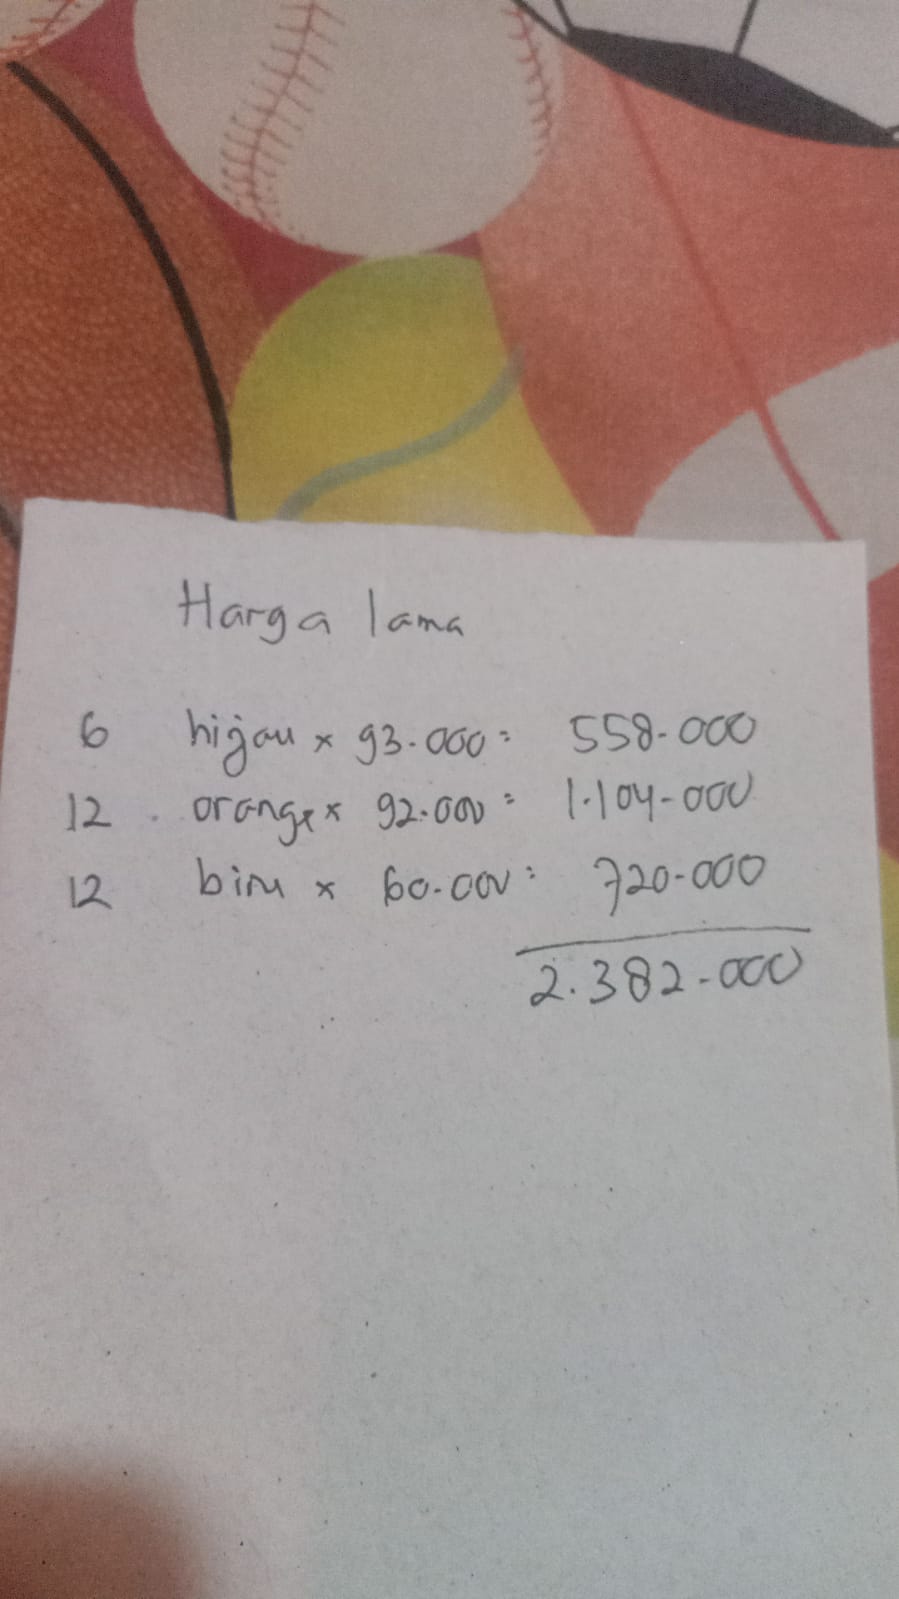 Harga lama
6 hijau x 93.000 = 558.000
12 orange x 92.000 = 1.104.000
12 biru x 60.000 = 720.000
2.382.000